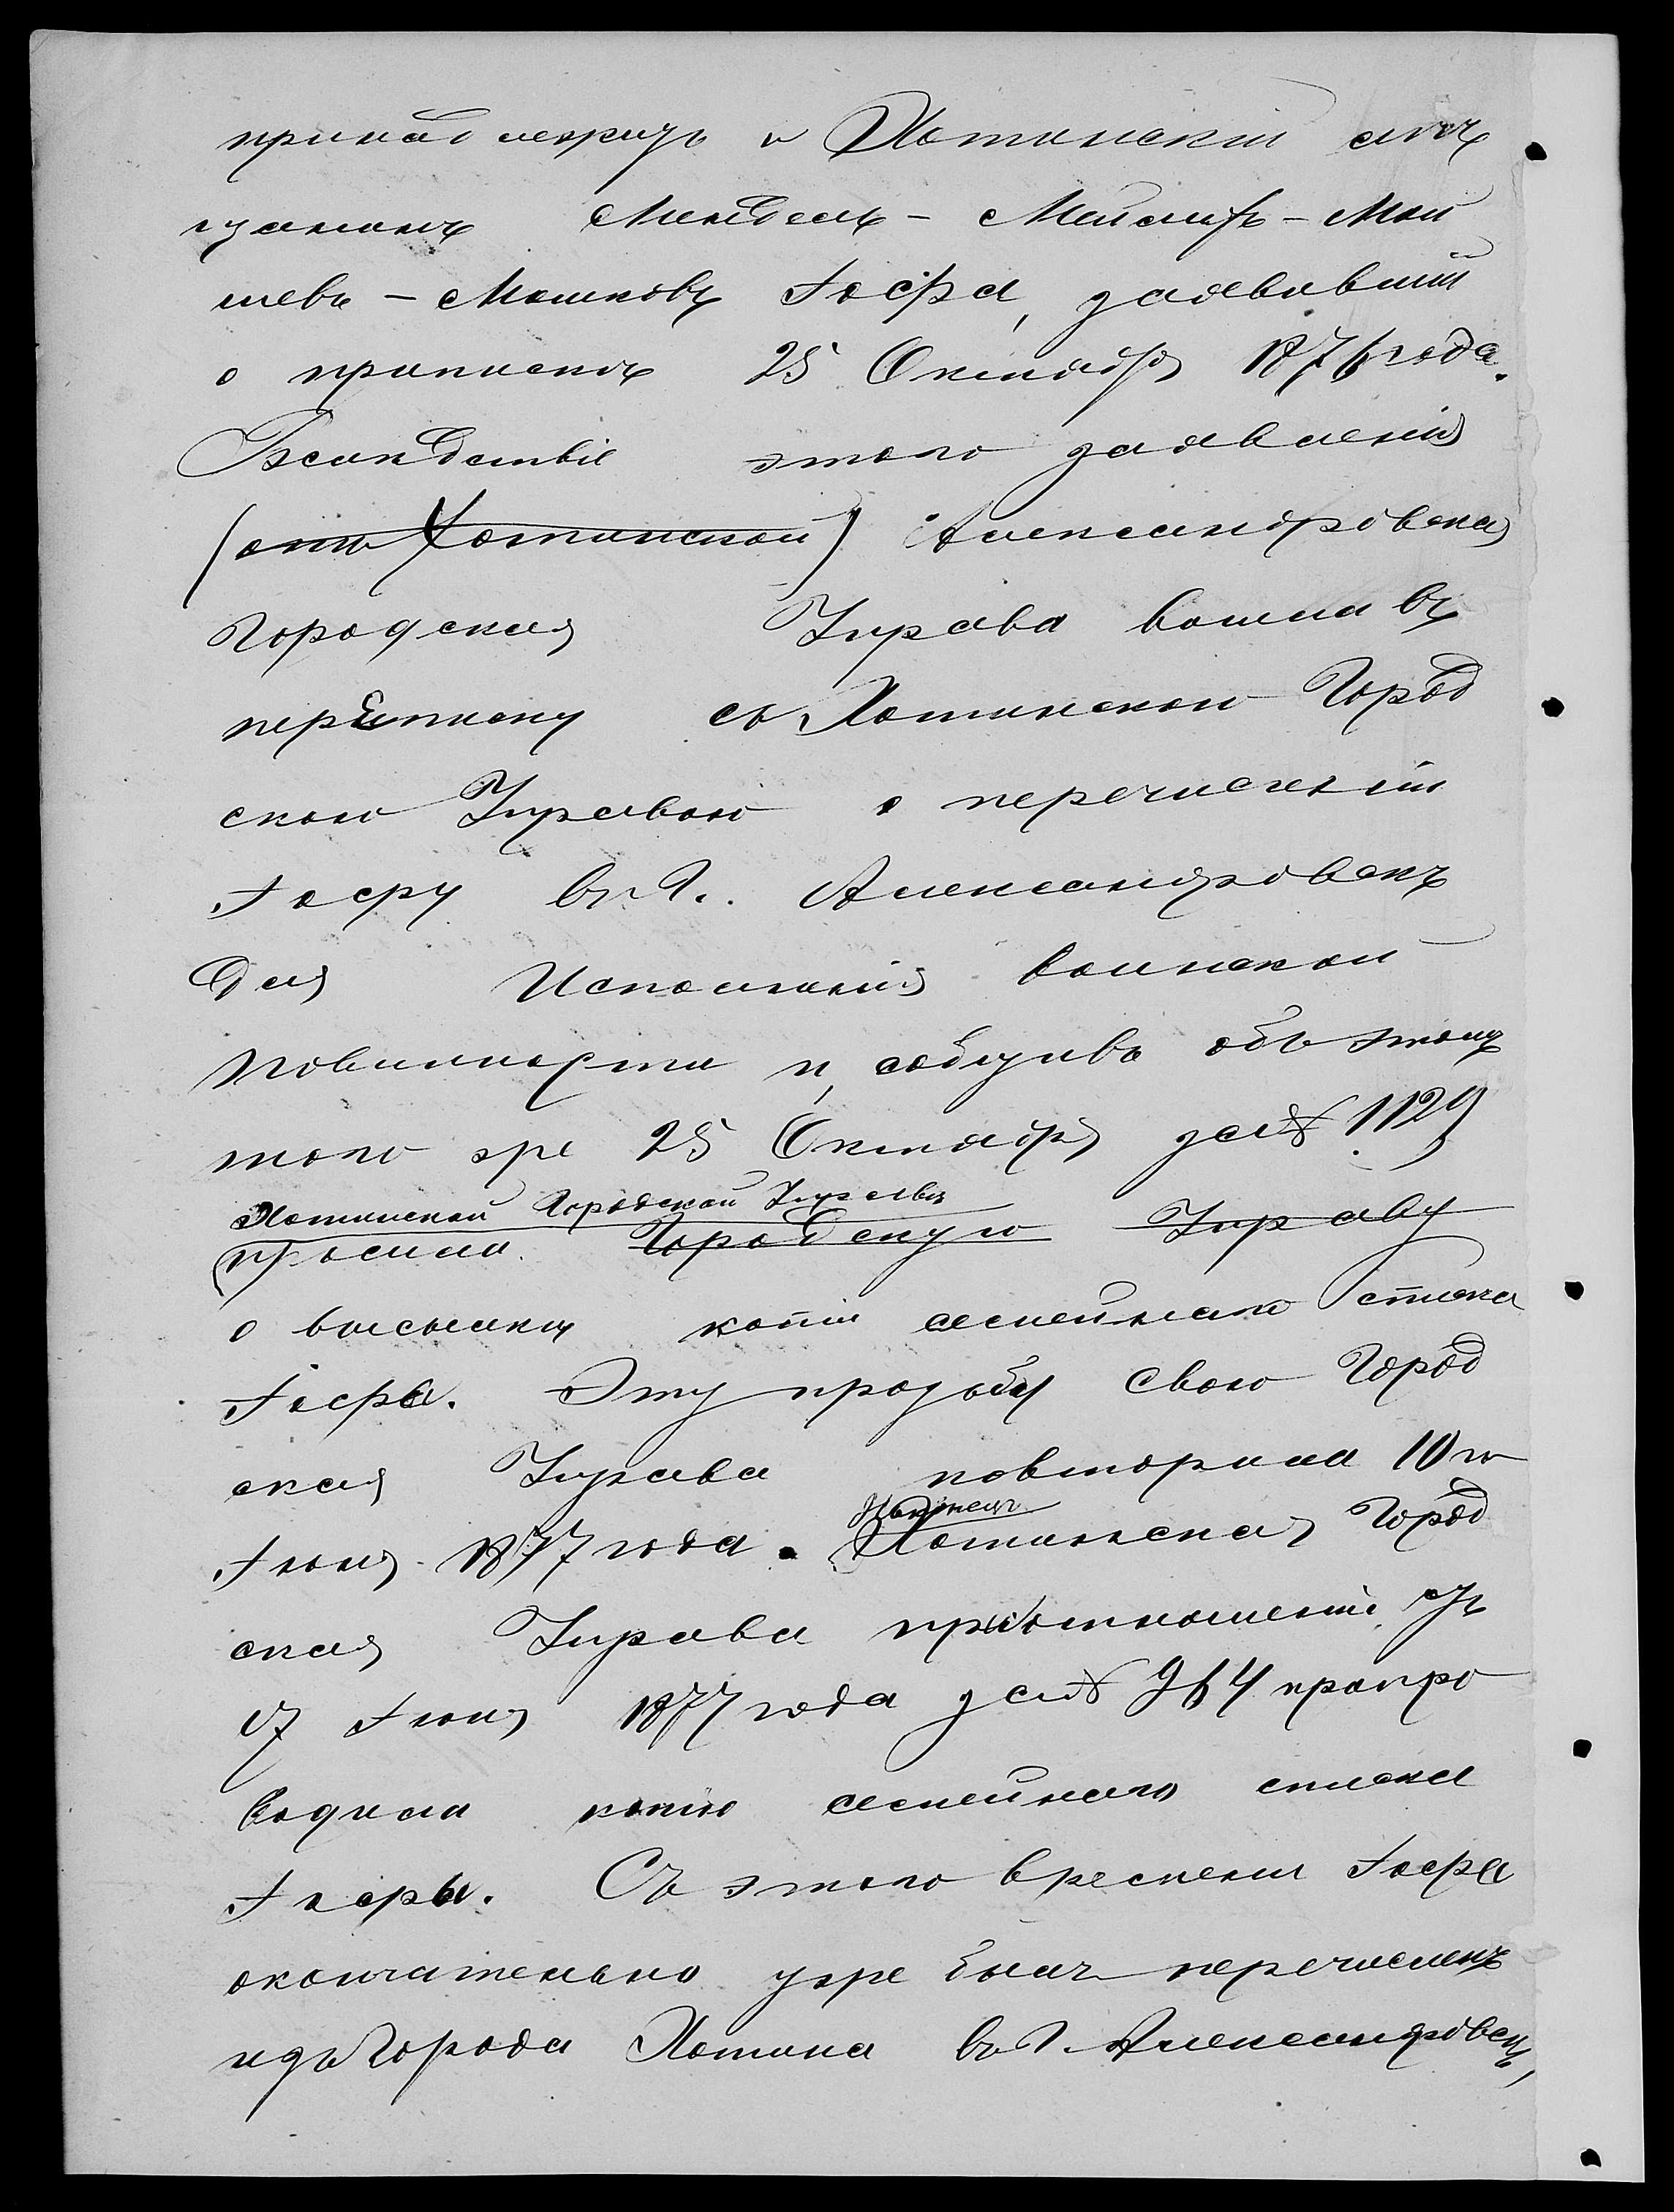 принадлежитъ и Хотинскій мѣ
щанинъ Мендель - Меилихъ - Мой
шевъ - Мошковъ Іосфа, заявившій
о припискѣ 25 Октября 1876 года.
Вслѣдствіе этого заявленія
(отъ Хотинской) Александровская
Городская Управа вошла въ
переписку съ Хотинскою Город
скою Управою о перечисленіи
Іосфу въ Г. Александровскъ
для Исполненія воинской
повинности и, сообщивъ объ этомъ
того же 25 Октября за № 1129
Хотинской Городской Управы
просила Городскую Управу
о высылки копіи семейнаго списка
Іосфа. Эту прозьбу свою Город
ская Управа повторила 10 го
Іюня 1877 года. Наконецъ
Хотинская Город
ская Управа при отношеніи отъ
17 Іюня 1877 года за № 964 препро
водила копію семейнаго списка
Іосфы. Съ этого времени Іосфа
окончательно уже былъ перечисленъ
изъ Города Хотина въ Г. Александровскъ,